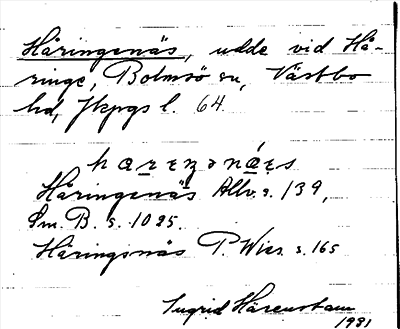 Håringenäs, udde vid Hå-
ringe, Bolmsö sn, Västbo
hd, Jkpgs l. 64.
Håringenäs Allv. s. 139,
Sm. B. s. 1025.
Håringsnäs P. Wies. s. 165
Ingrid Härenstam
1931